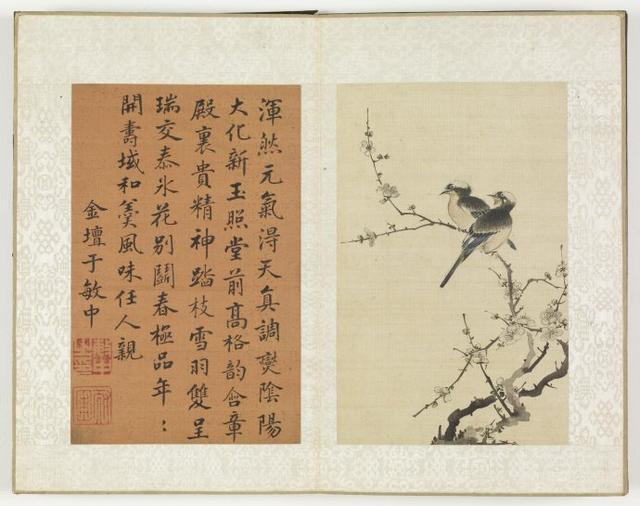 渾然元氣淂天真調爕隂陽
大化新玉照堂前髙格韵含章
殿裏貴精神踏枝雪羽雙呈
瑞交泰氷花別鬭春極品年:
開壽域和羮風味任人親
金壇于敏中